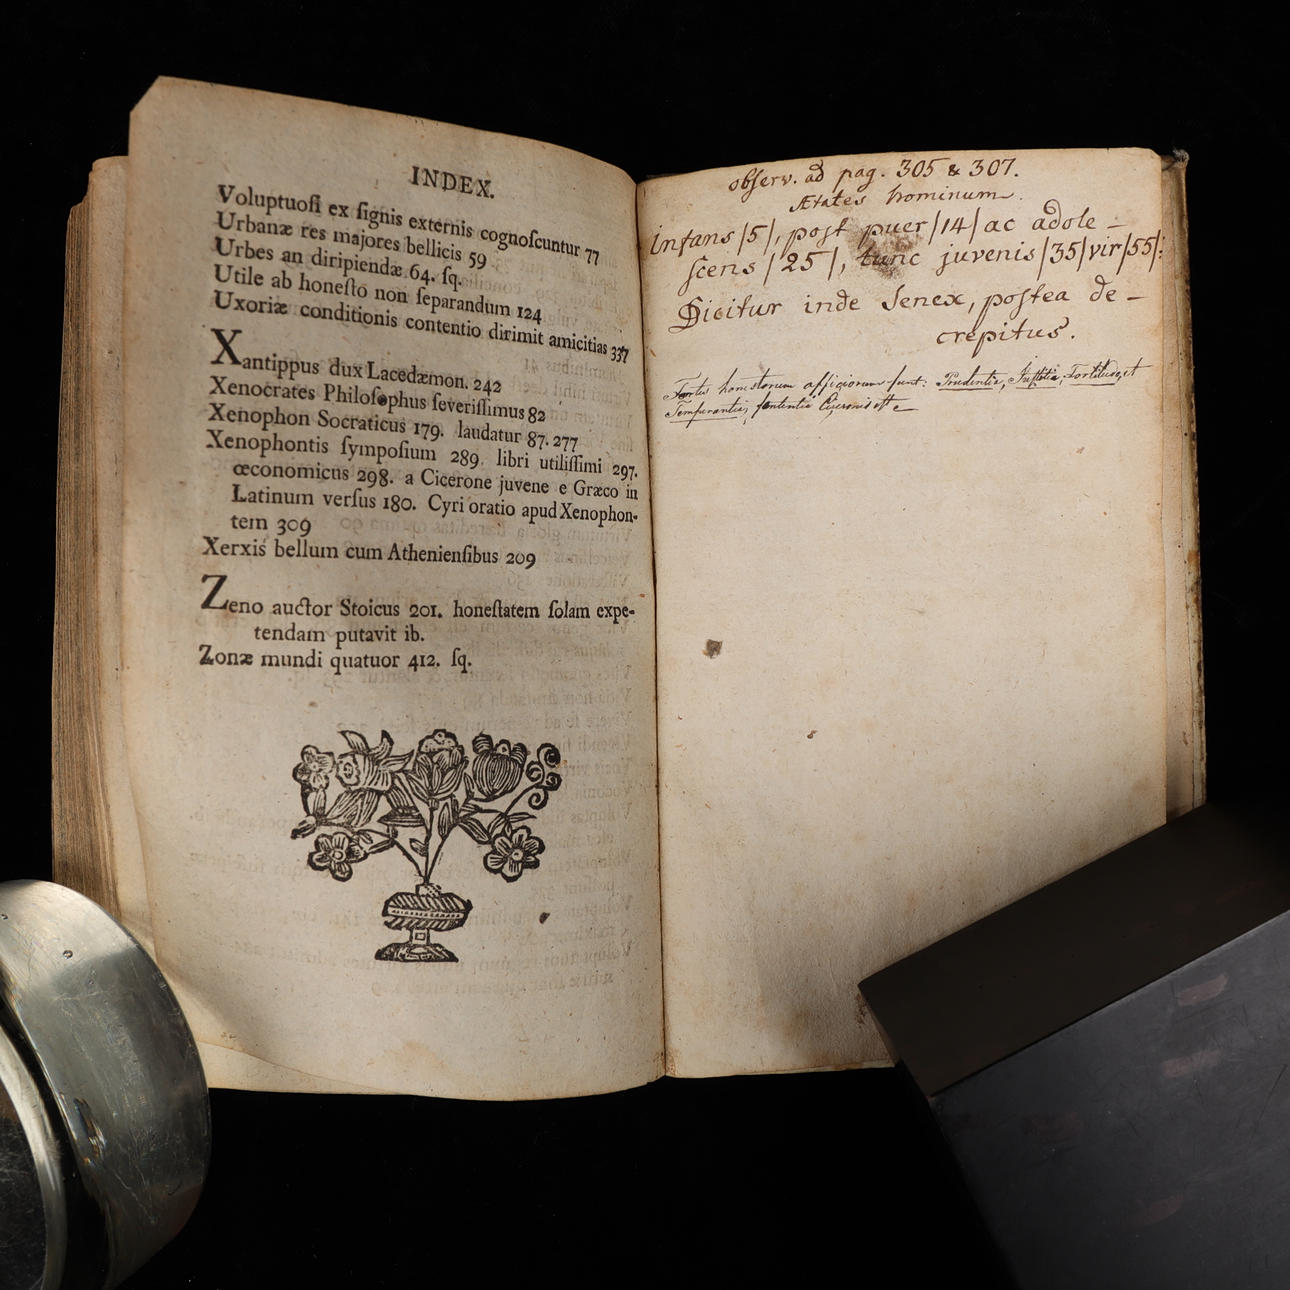 INDEX.
Voluptuoſi ex ſignis externis cognoſcuntur 77
Urbanæ res majores bellicis 59
Urbes an diripiendæ 64. ſq.
Utile ab honeſto non ſeparandum 124
Uxoriæ conditionis contentio dirimit amicitias 337
Xantippus dux Lacedæmon. 242
Xenocrates Philoſophus ſeveriſſimus 82
Xenophon Socraticus 179. laudatur 87. 277
Xenophontis ſympoſium 289. libri utiliſſimi 297.
œconomicus 298. a Cicerone juvene e Græco in
Latinum verſus 180. Cyri oratio apud Xenophon-
tem 309
Xerxis bellum cum Athenienſibus 209
Zeno auctor Stoicus 201. honeſtatem ſolam expe-
tendam putavit ib.
Zonæ mundi quatuor 412. ſq.
obſerv. ad pag. 305 & 307.
Ætates hominum.
infans /5/, poſt puer /14/ ac adole-
ſcens /25/, tunc juvenis /35/ vir /55/:
Dicitur inde Senex, poſtea de-
crepitus.
honeſtorum officiorum ſunt: Prudentia, Juſtitia, Fortitudo, et
Temperantia, ſententia Ciceronis